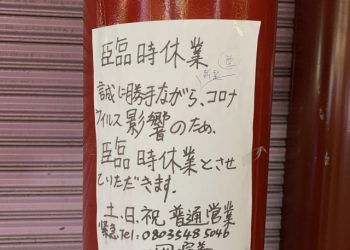 臨時休業
誠に勝手ながら、コロナ
ウイルス影響のため、
臨時休業とさせ
ていただきます。
土、日、祝 普通営業
緊急Tel:08035485046